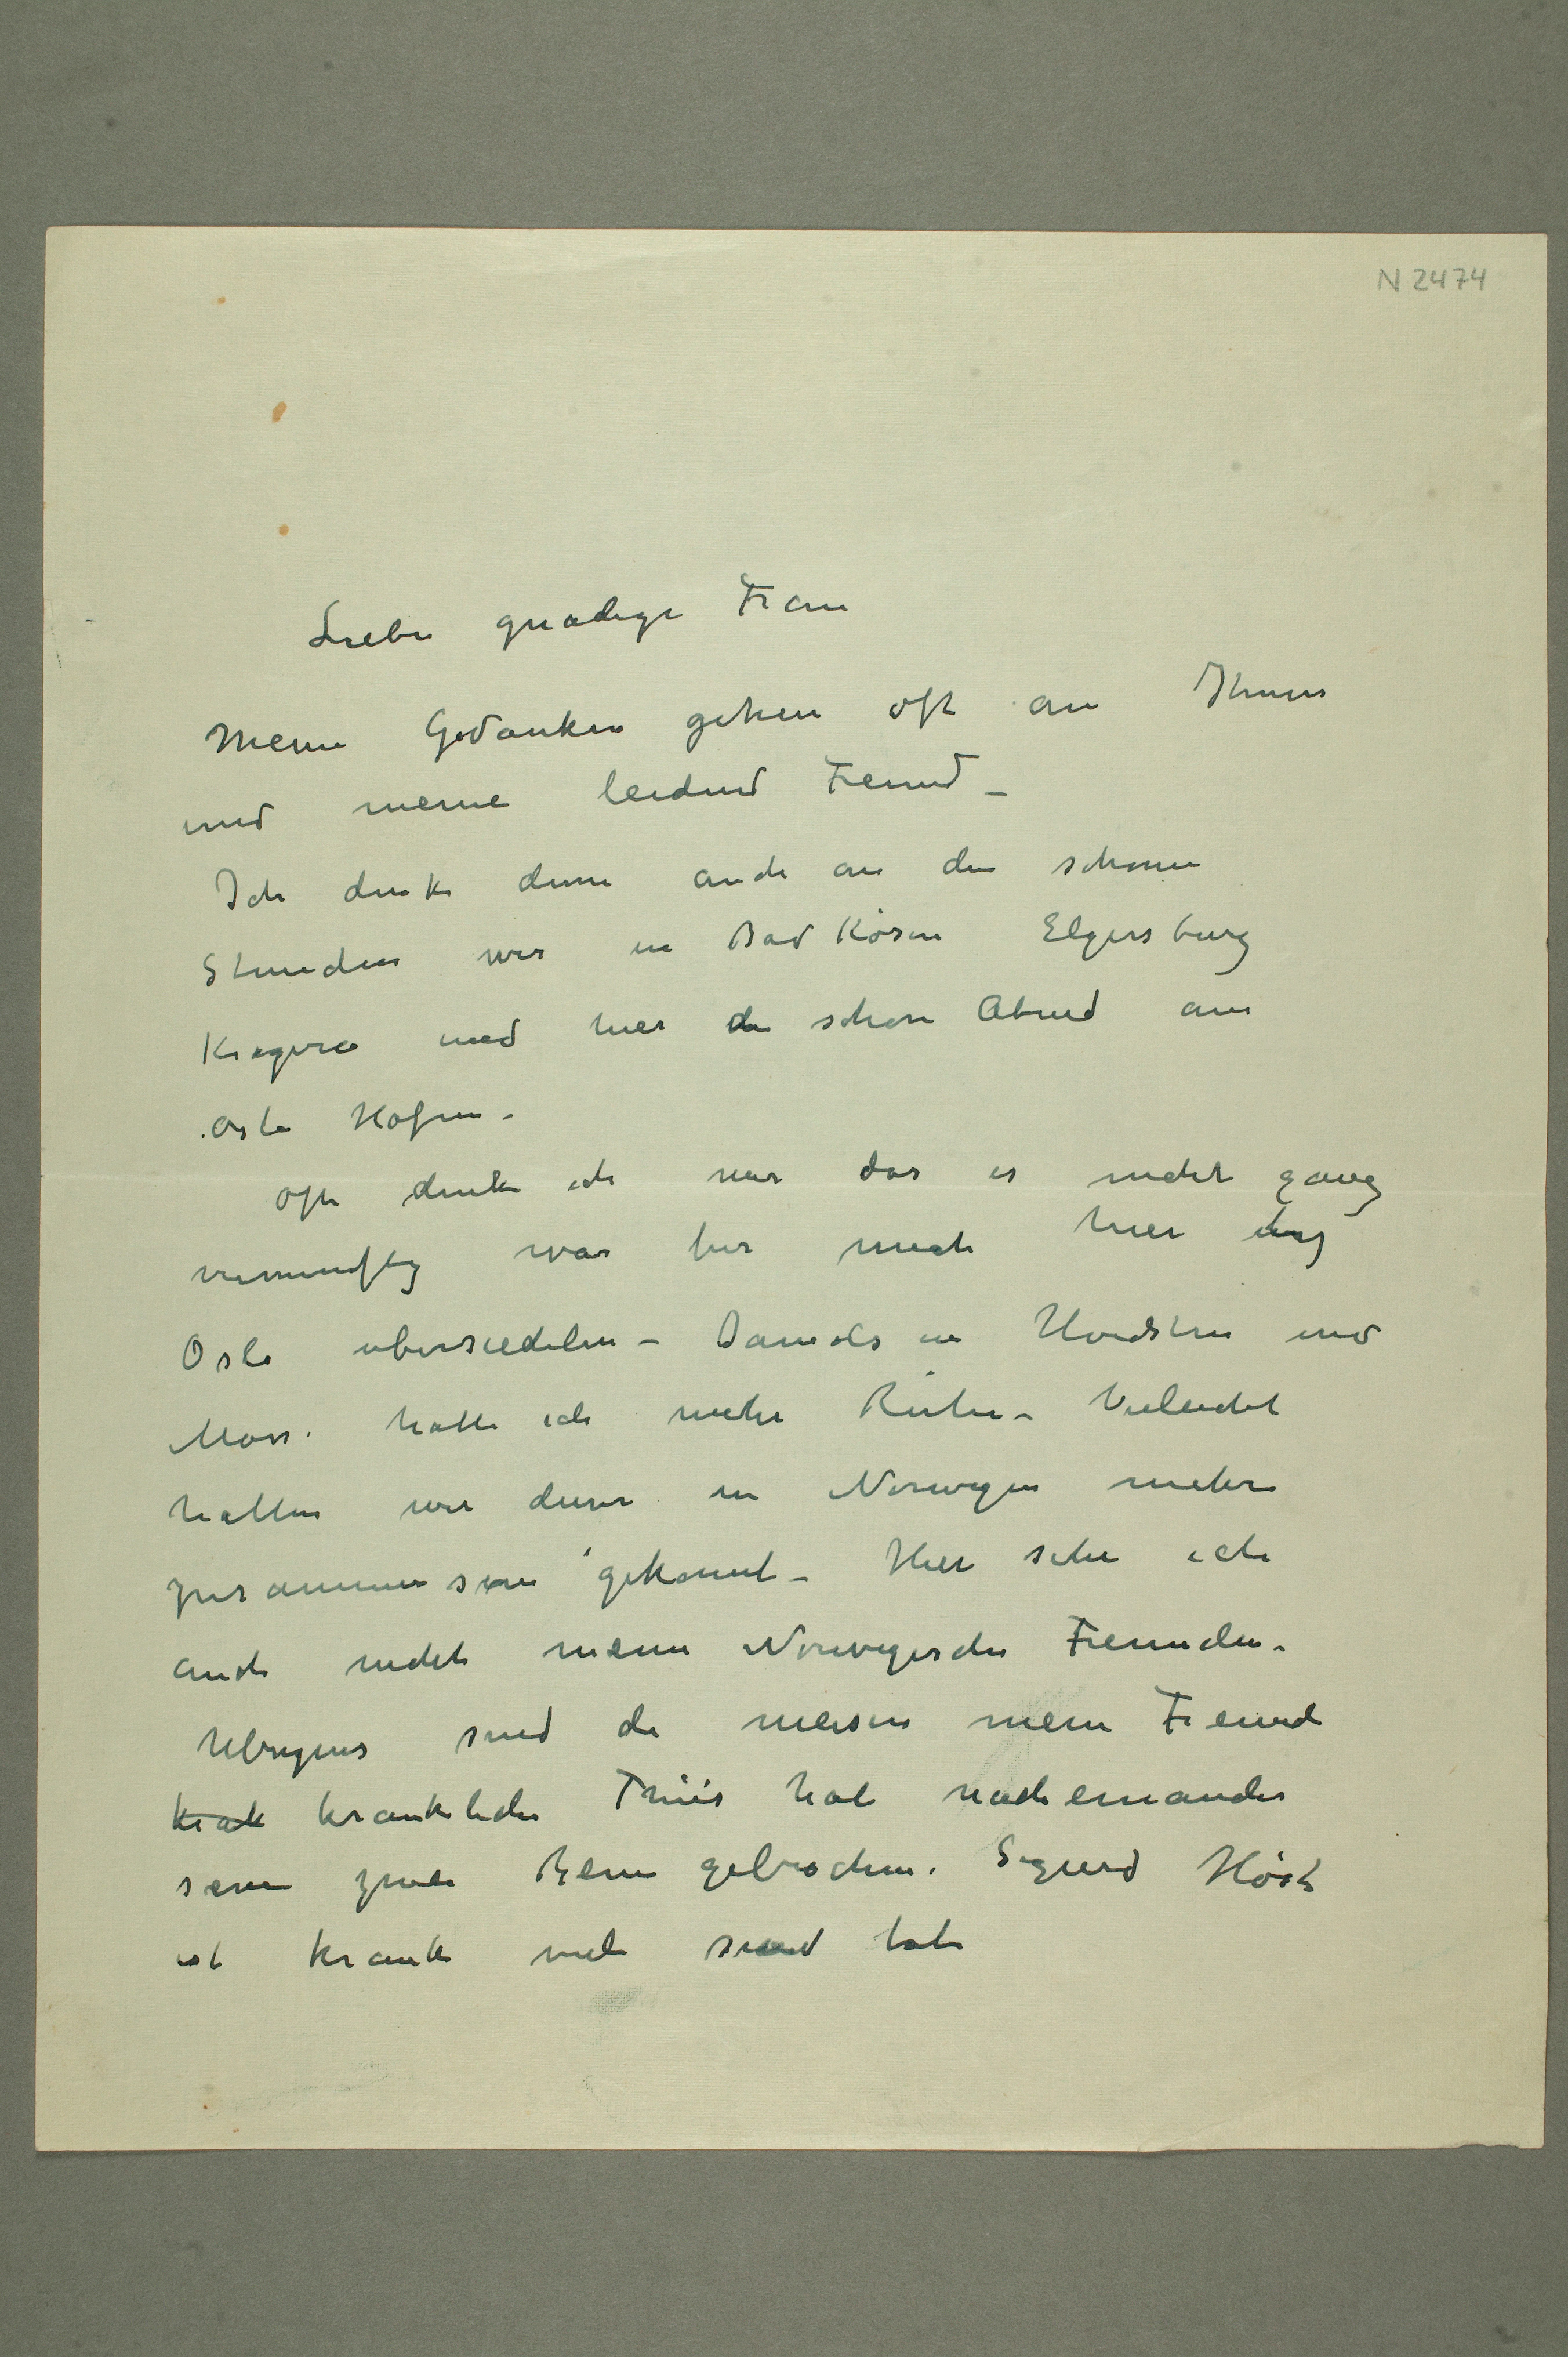 N 2474
Liebe gnadige Frau
Meine Gedanken gehen oft an Ihnen
und meine leidend Freund –
Ich denke denn auch an die schonen
Stunden wir in Bad Kösen Elgersburg
Kragerø und hier die schone Abend am
Oslo Hafen –
Oft denke ich nur das es nicht ganz
vernunftig war fur mich hier
Oslo ubersiedelen – Damals in Hvidsten und
Moss hatte ich mehr Ruhe – Vieleicht
hatten wir denn in Norwegen mehr
zusammen sein gekonnt – Hier sehe ich
auch nicht meine Norwegische Freunden.
Ubrigens sind die meisten meine Freunde
krak krankliche Thiis hat nacheinander
seine zwei Beine gebrochen. Sigurd Höst
ist krank viele sind tote